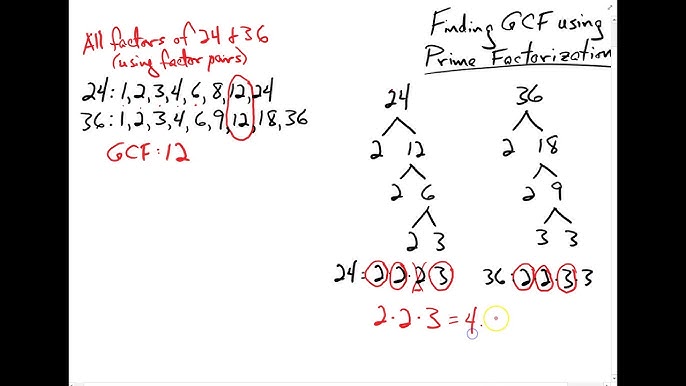 All factors of 24 & 36
(using factor pairs)
24: 1, 2, 3, 4, 6, 8, 12, 24
36: 1, 2, 3, 4, 6, 9, 12, 18, 36
GCF: 12
Finding GCF using
Prime Factorization
24
2 12
2 6
2 3
24: 2·2·2·3
36
2 18
2 9
3 3
36: 2·2·3·3
2·2·3=4·